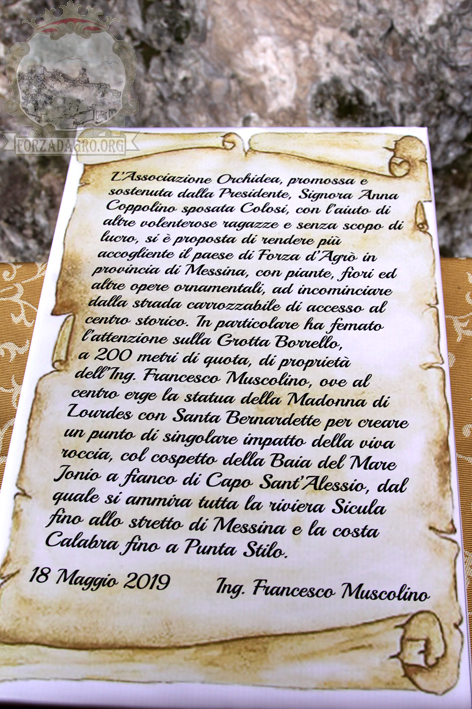 FORZADAGRO.ORG
L'Associazione Orchidea, promossa e
sostenuta dalla Presidente, Signora Anna
Coppolino sposata Colosi, con l'aiuto di
altre volenterose ragazze e senza scopo di
lucro, si è proposta di rendere più
accogliente il paese di Forza d'Agrò in
provincia di Messina, con piante, fiori ed
altre opere ornamentali, ad incominciare
dalla strada carrozzabile di accesso al
centro storico. In particolare ha femato
l'attenzione sulla Grotta Borrello,
a 200 metri di quota, di proprietà
dell'Ing. Francesco Muscolino, ove al
centro erge la statua della Madonna di
Lourdes con Santa Bernardette per creare
un punto di singolare impatto della viva
roccia, col cospetto della Baia del Mare
Jonio a fianco di Capo Sant'Alessio, dal
quale si ammira tutta la riviera Sicula
fino allo stretto di Messina e la costa
Calabra fino a Punta Stilo.
18 Maggio 2019 Ing. Francesco Muscolino